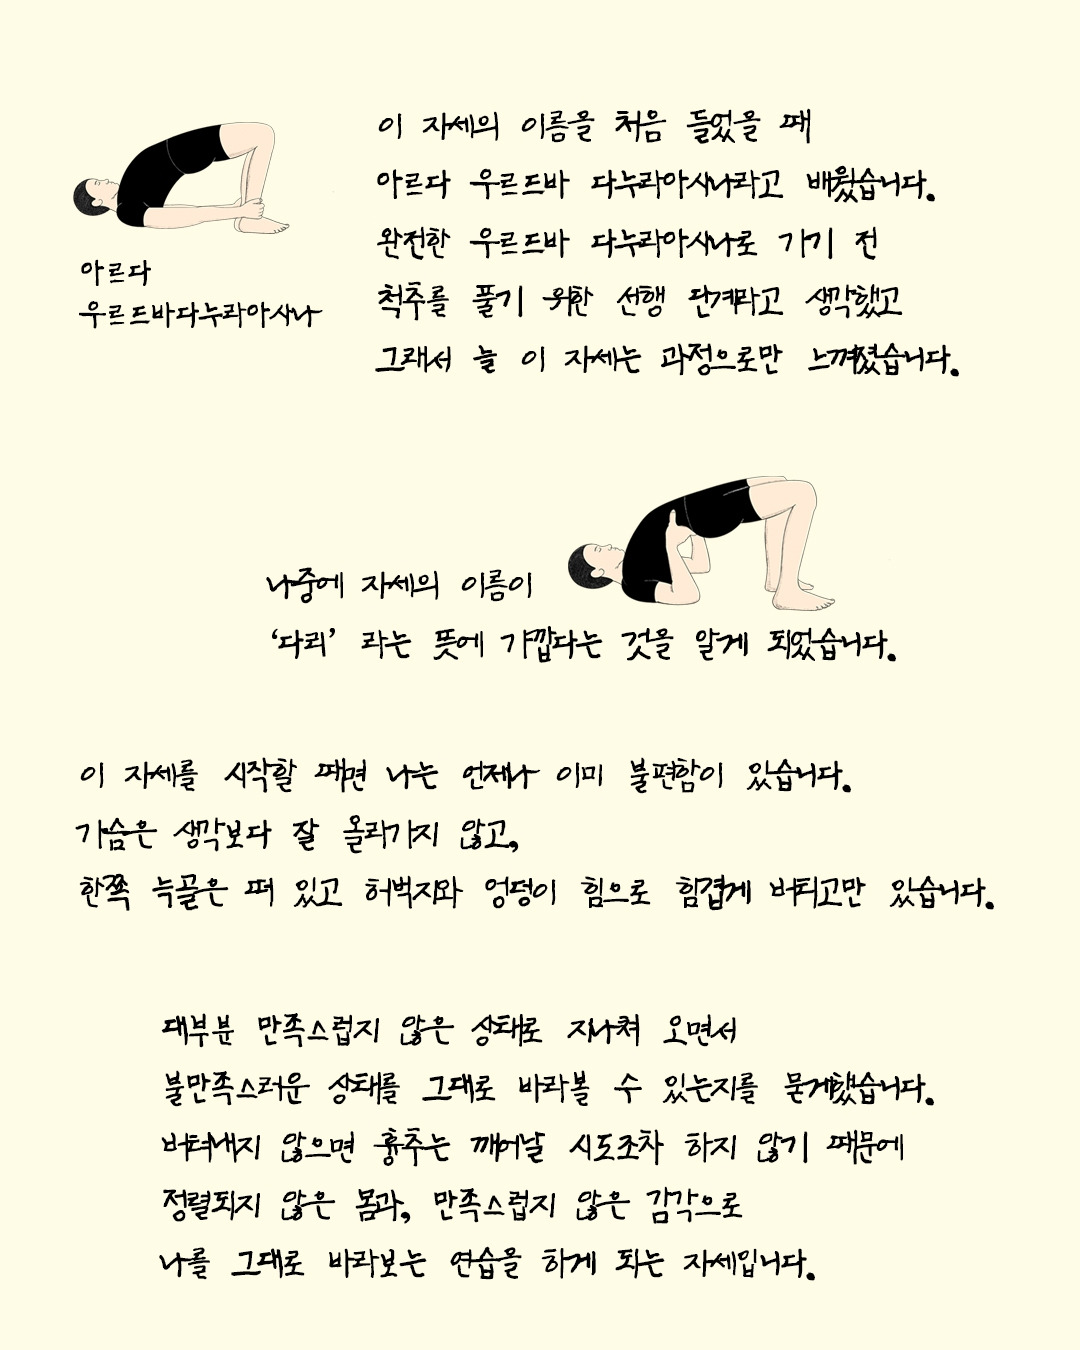 이 자세의 이름을 처음 들었을 때
아르다 우르드바 다누라아사나라고 배웠습니다.
완전한 우르드바 다누라아사나로 가기 전
척추를 풀기 위한 선행 단계라고 생각했고
그래서 늘 이 자세는 과정으로만 느껴졌습니다.
아르다
우르드바다누라아사나
나중에 자세의 이름이
‘다리’ 라는 뜻에 가깝다는 것을 알게 되었습니다.
이 자세를 시작할 때면 나는 언제나 이미 불편함이 있습니다.
가슴은 생각보다 잘 올라가지 않고,
한쪽 늑골은 떠 있고 허벅지와 엉덩이 힘으로 힘겹게 버티고만 있습니다.
대부분 만족스럽지 않은 상태로 지나쳐 오면서
불만족스러운 상태를 그대로 바라볼 수 있는지를 묻게했습니다.
버텨내지 않으면 흉추는 깨어날 시도조차 하지 않기 때문에
정렬되지 않은 몸과, 만족스럽지 않은 감각으로
나를 그대로 바라보는 연습을 하게 되는 자세입니다.